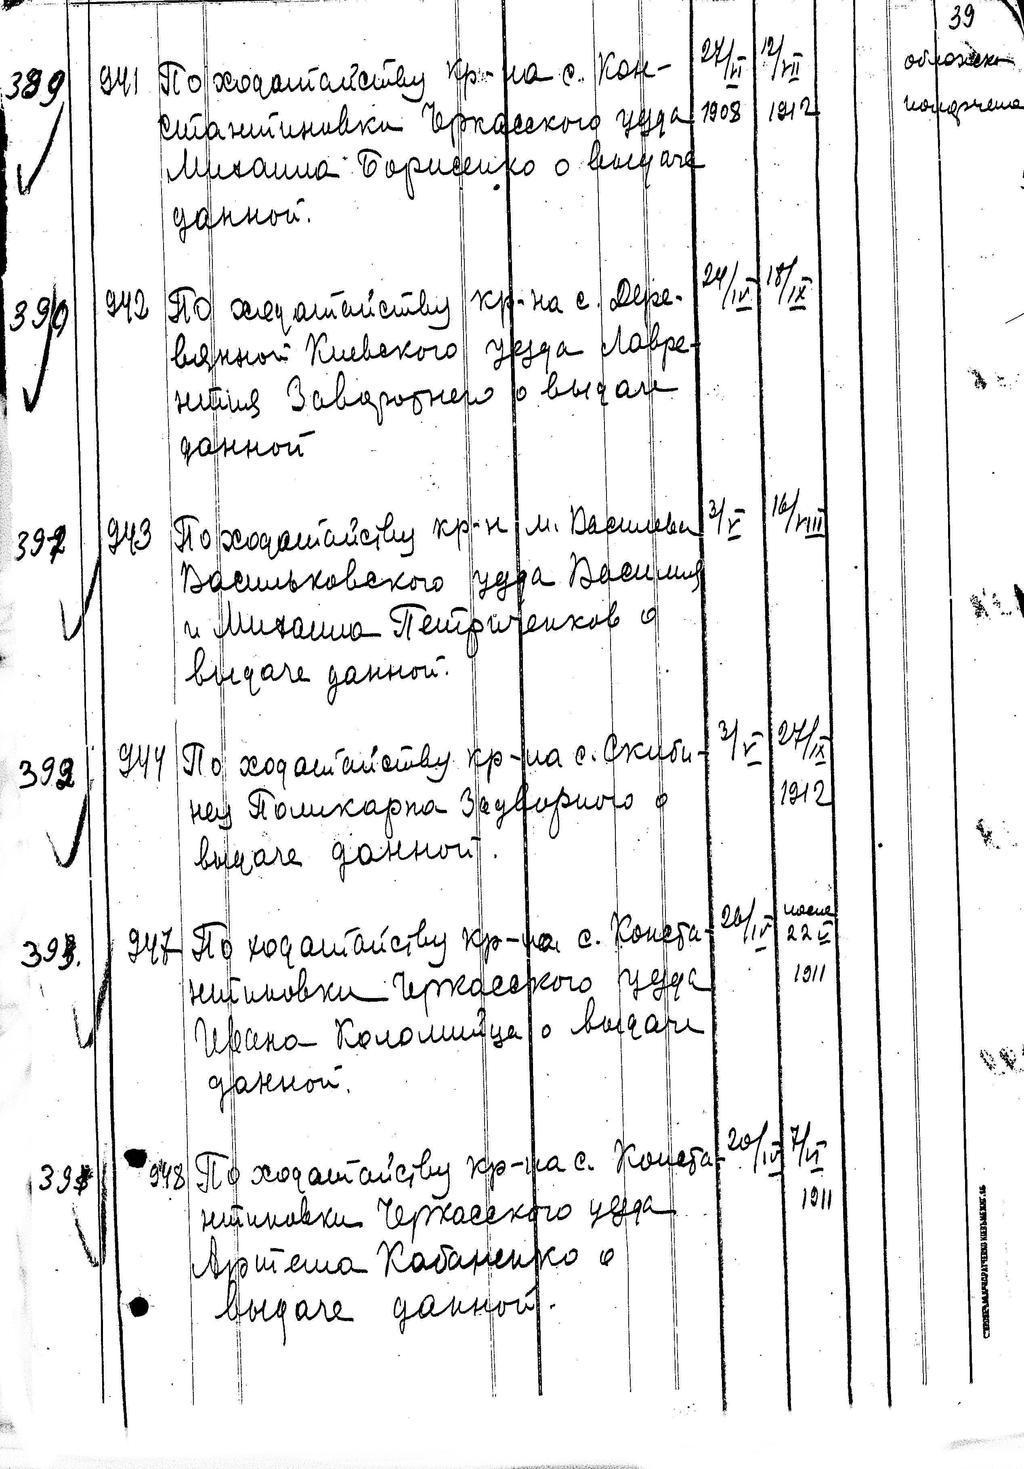 39
389 941 По ходатайству кр-на с. Кон- 27/VI 12/VII обложка
стантиновки Черкасского уезда 1908 1912
Михаила Борисенко о выдаче
данной.
390 942 По ходатайству кр-на с. Дере- 24/IV 18/IX
вянной Киевского уезда Лавре-
нтия Заворотнего о выдаче
данной
391 943 По ходатайству кр-н м. Василева 3/V 16/VIII
Васильковского уезда Василия
и Михаила Петриченков о
выдаче данной.
392 944 По ходатайству кр-на с. Скиби- 3/V 27/IX
нец Поликарпа Задворного о 1912
выдаче данной.
393. 947 По ходатайству кр-на с. Конста- 20/IV после 22
нтиновки Черкасского уезда 1911
Ивана Коломийца о выдаче
данной.
948 По ходатайству кр-на с. Конста- 20/IV 7/VI
нтиновки Черкасского уезда 1911
Артема Кабаненко о
выдаче данной.